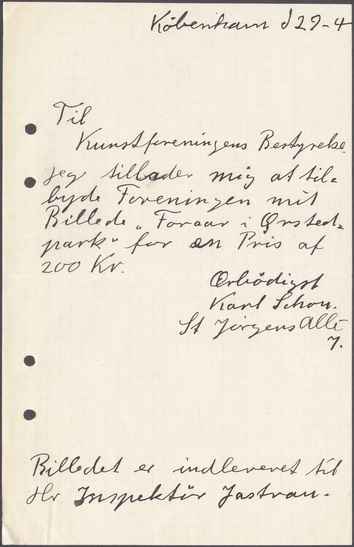 København d 29-4
Til
Kunstforeningens Bestyrelse.
Jeg tillader mig at til-
byde Foreningen mit
Billede „Foraar i Ørsteds-
park" for en Pris af
200 Kr.
Ærbödigst
Karl Schou.
St Jörgens Allé
7.
Billedet er indleveret til
Hr Inspektör Jastrau.